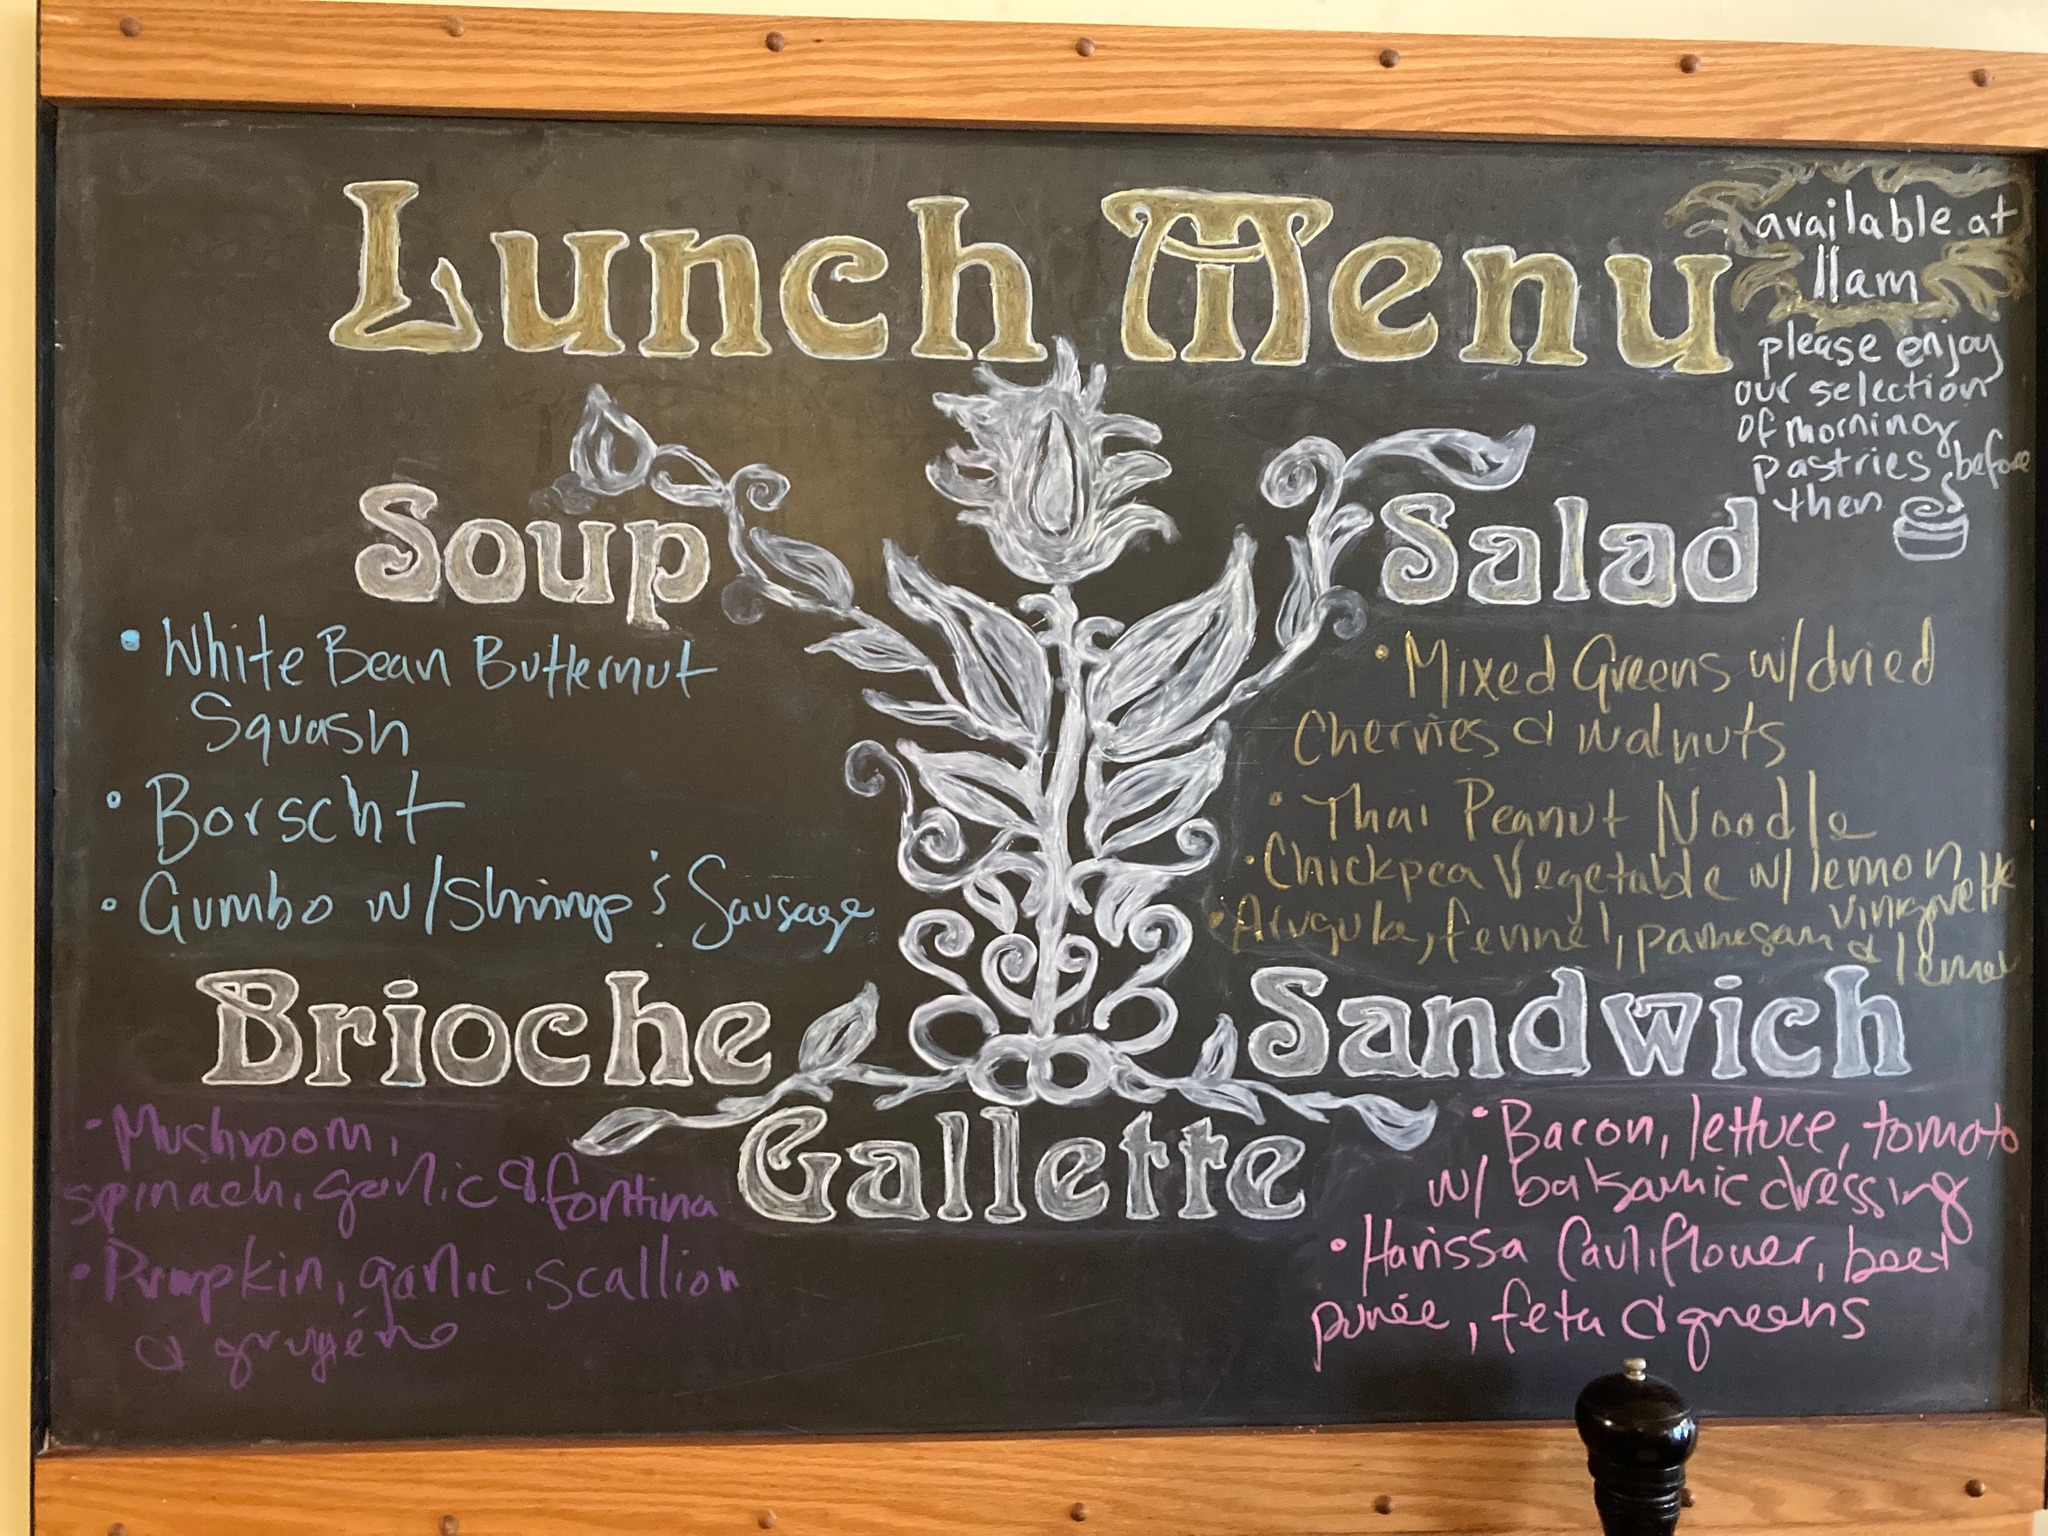 Lunch Menu
available at
11am
please enjoy
our selection
of morning
pastries before
then
Soup
• White Bean Butternut
Squash
• Borscht
• Gumbo w/Shrimp & Sausage
Salad
• Mixed Greens w/dried
Cherries & walnuts
• Thai Peanut Noodle
• Chickpea Vegetable w/ lemon
vingrette
• Arugula, fennel, parmesan & lemon
Brioche
• Mushroom,
spinach, garlic & fontina
• Pumpkin, garlic, scallion
& gruyére
Gallette
Sandwich
• Bacon, lettuce, tomato
w/ balsamic dressing
• Harissa Cauliflower, beet
purée, feta & greens